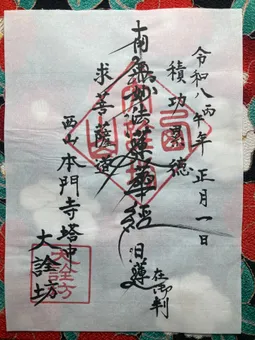 令和八丙午年 正月一日
積功累徳
南無妙法蓮華経 日蓮
在御判
求菩薩道
西山本門寺塔中
大詮坊
大詮坊